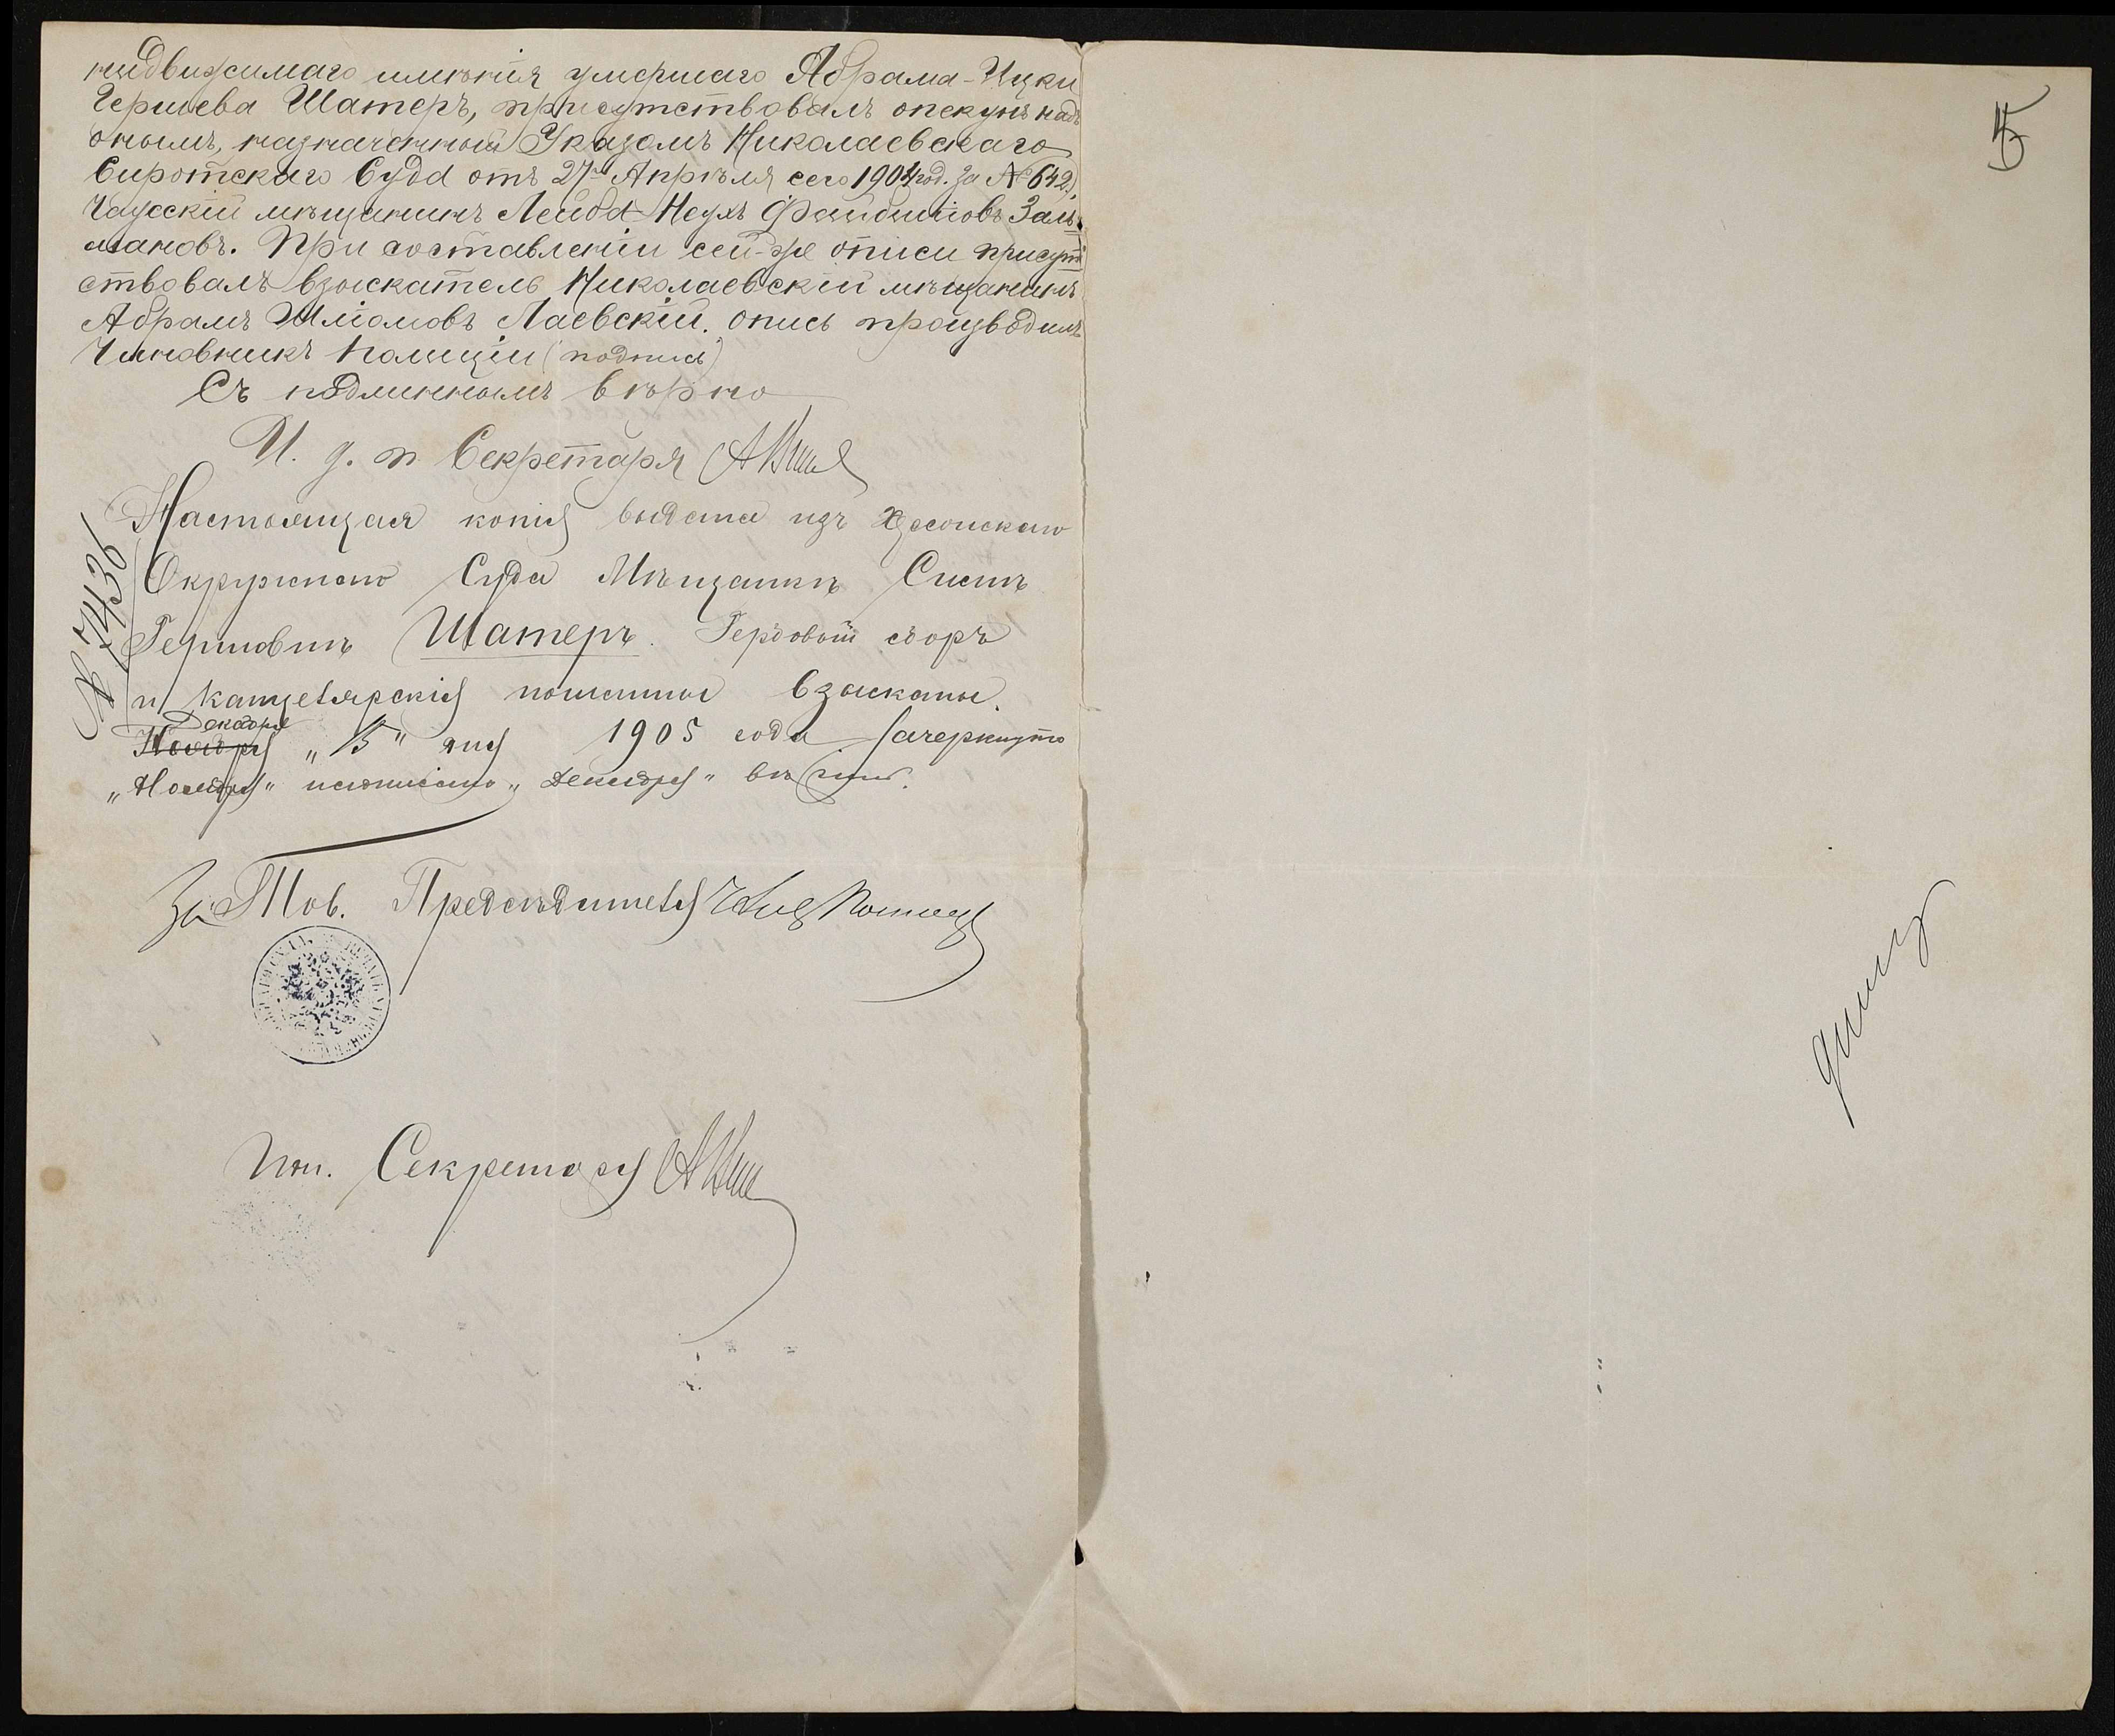 недвижимаго имѣнія умершаго Абрама-Ицки
Гершева Шатеръ, присутствовалъ опекунъ надъ
онымъ, назначенный Указомъ Николаевскаго
Сиротскаго Суда отъ 27го Апрѣля сего 1904 год. за № 642,
Чаусскій мѣщанинъ Лейба-Неухъ Файбишовъ Заль-
мановъ. При составленіи сей-же описи присут-
ствовалъ взыскатель Николаевскій мѣщанинъ
Абрамъ Шліомовъ Лаевскій. опись производилъ
Чиновникъ Полиціи (подпись)
Съ подлиннымъ вѣрно
И. д. п. Секретаря
Настоящая копія выдана изъ Херсонскаго
Окружнаго Суда Мѣщанкѣ
Гершовнѣ Шатеръ. Гербовый сборъ
и канцелярскія пошлины взысканы.
Декабря
Ноября „15" дня 1905 года Зачеркнуто
„Ноября" надписано „Декабря" вѣрить.
№ 17436
За Тов. Предсѣдателя
Пом. Секретаря
5